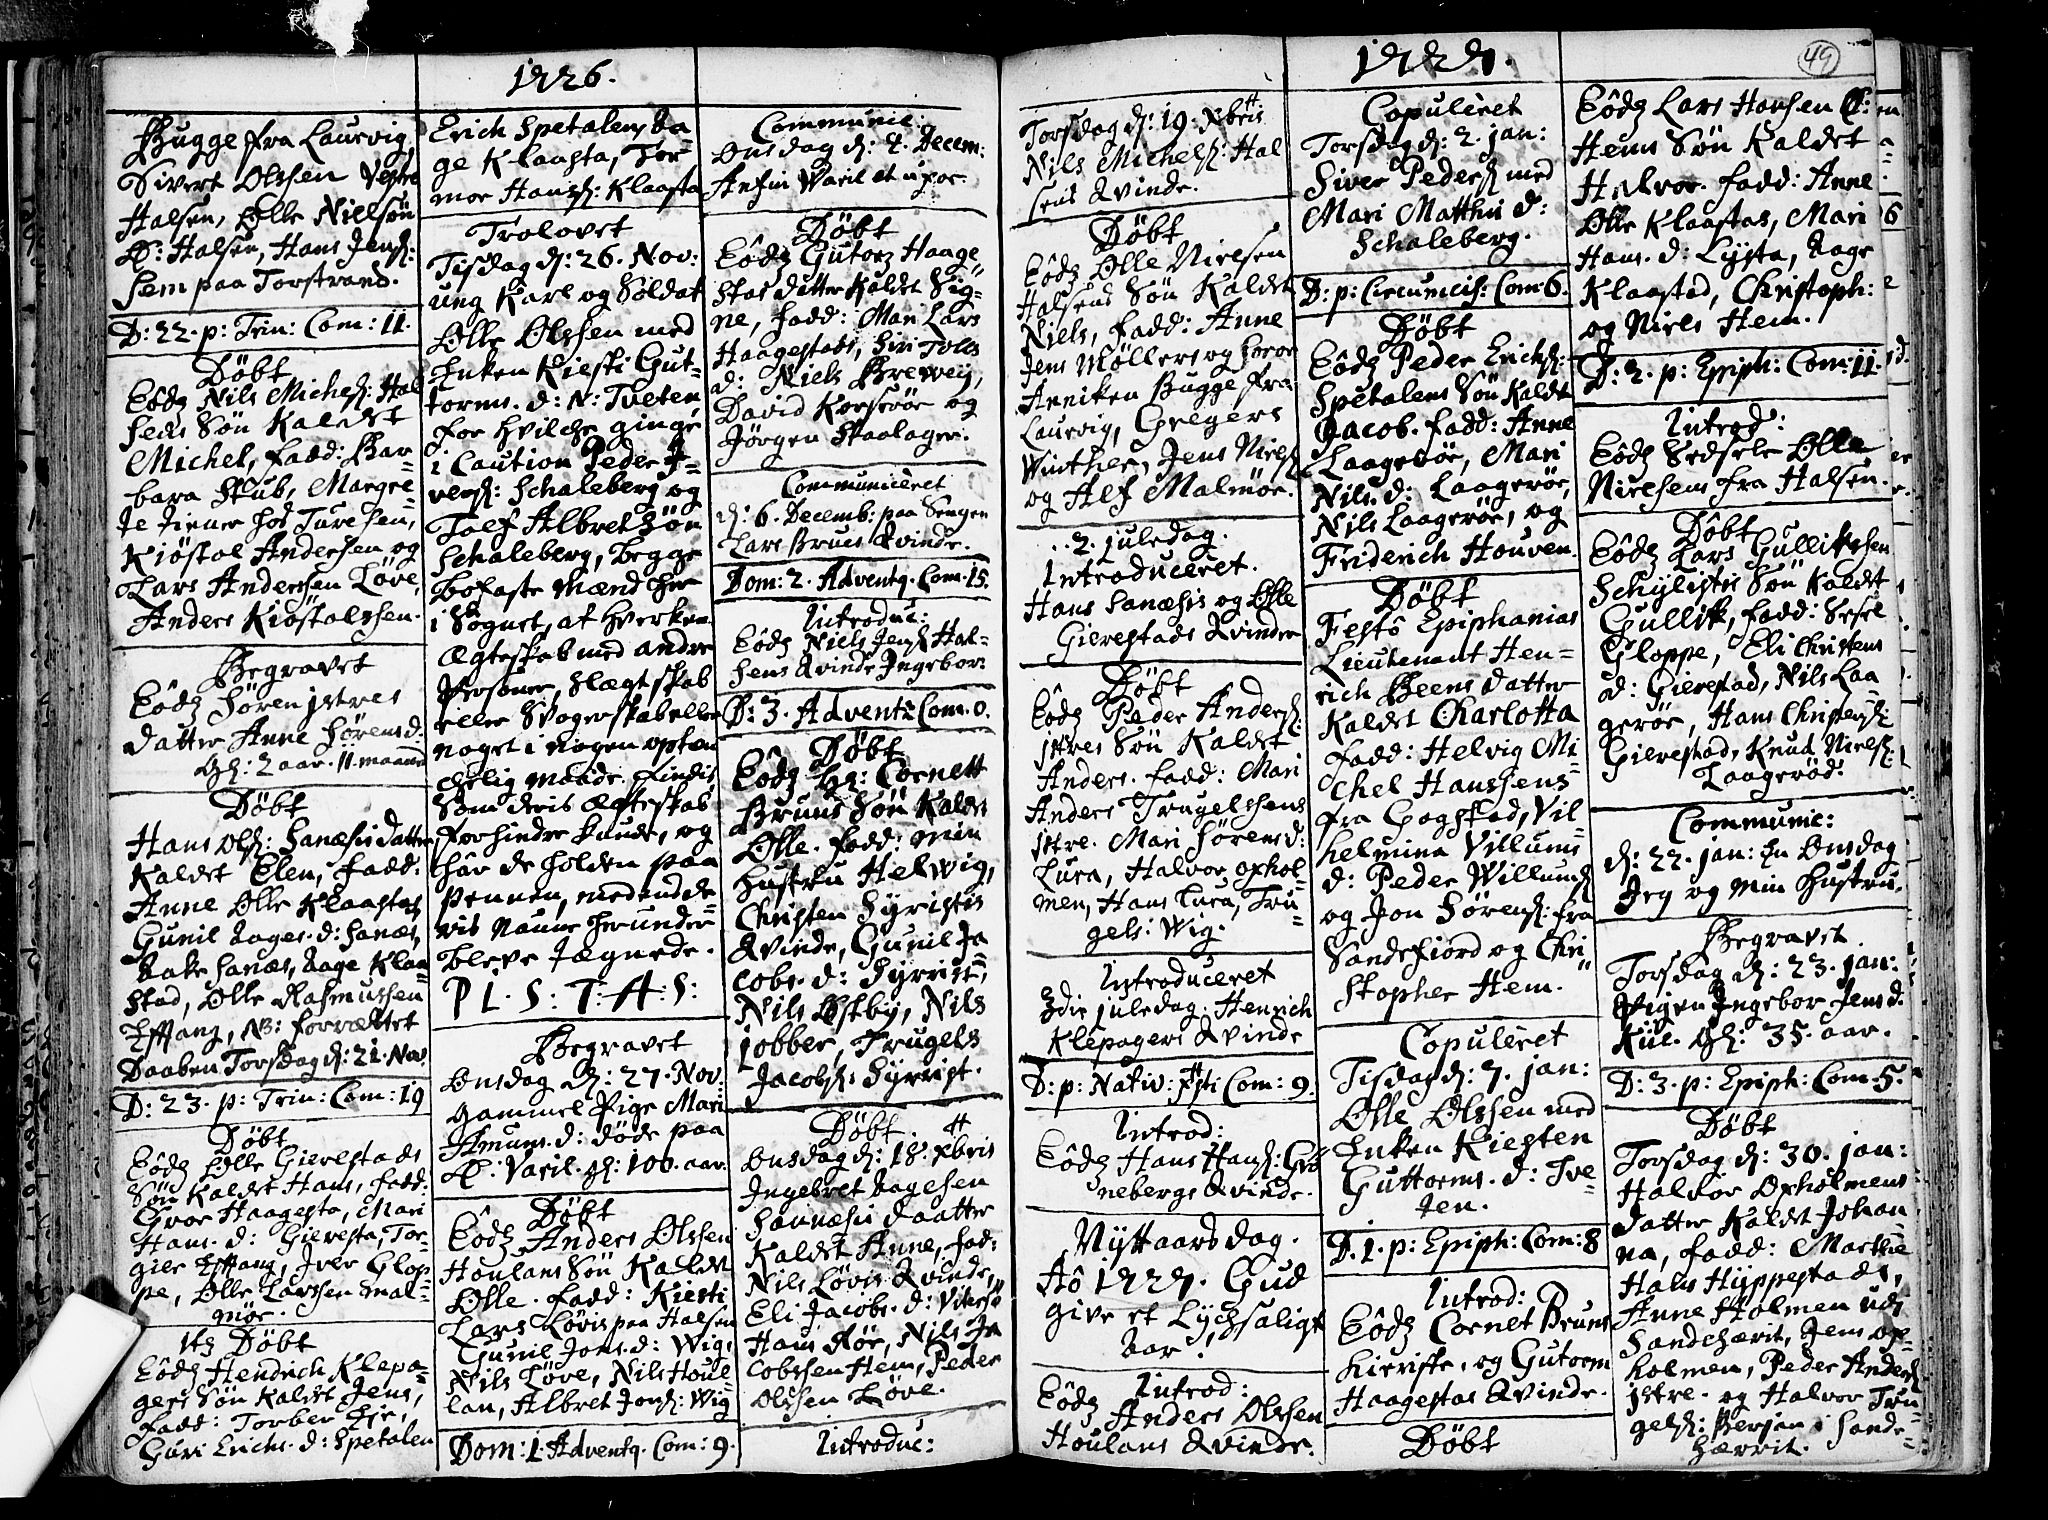 1726.
Bugge fra Laurvig,
Sivert Olssen Vestre
Halsen, Olle Nielsøn
Ø: Halsen, Hans Jens:
Sem paa Torstrand.
D: 22. p: Trin: Com: 11.
Døbt
Eôdẽ Nils Michels: Hal
sens Søn Kaldet
Michel, fadd: Bar=
bara Skub, Margre=
te tiener hos Turesen,
Kiøstol Andersen og
Lars Anderssen Løve,
Anders Kiøstolssen.
Begravet
Eôdẽ Søren istres
datter Anne Sørens d.
Gl: 2 aar. 11. maaned
Døbt
Hans Ols: Sanæsis datter
Kaldet Elen, fadd:
Anne Olle Klaastas
Gunil Aages. d: Sanæs,
Aake Sanæs, Aage Klaa=
stad, Olle Rasmussen
Effang, NB: forrættet
Daaben Torsdag d: 21. Nov.
D: 23. p: Trin: Com: 19
Døbt
Eôdẽ Olle Gierestads
Søn Kaldet Hans, fadd:
Gvor Haagesta, Mari
Hans. d: Gieresta, Tor=
gier Effang, Iver Glop=
pe, Olle Larssen mal=
møe.
Døbt
Eôdẽ Hendrich Klepa=
gers Søn Kaldet Jens,
fadd: Torber
Guri Erichs. d: Spetalen
Erich Spetalen, Aa
ge Klaasta, Tor=
moe Hans: Klaasta
Trolovet
Tisdag d: 26. Nov:
ung Karl og Soldat
Olle Olssen med
Enken Kiesti Gut=
torms. d: N: Tveten
for hvilche ginge
i Caution Peder I=
vers: Schaleberg og
Toef Albretsøn
Schaleberg, begge
bofaste mænd her
i Sognet, at hverken
Ægteskab med andre
Persøner, slægtskab
eller Svogerskab eller
noget i nogen opten
chelig maade findis
som deris Ægteskab
forhindre kunde, og
har de holden paa
Pennen, med
vis Naune herunder=
bleve tegnede.
P I. S: T: A: S:
Begravet
Onsdag d: 27. Nov:
gammel Pige Mari
Amuns. d: døde paa
Ø: Varil. gl: 100. aar.
Døbt
Eôdẽ Anders Olssen
Houlans Søn Kaldet
Olle. fadd: Kiesti
Lars Løvis paa Halsen
Gunil Jons. d: Wig,
Nils Løve, Nils Houl=
lan, Albret Jons: Wig
Dom: 1. Advent9. Com: 9.
Communic:
Onsdag d: 4. Decem:
Anfin Waril et uxor.
Døbt
Eôdẽ Gutorm Haage=
stas datter Kaldet Sig=
ne, fadd: Mari Lars
Haagestads, Siri Tolls
d: Niels Brewey,
David Korserøe og
Jørgen Staalager.
Communiceret
d: 6. Decemb: paa Sengen
Lars Bruns Qvinde.
Dom: 2. Advent9. Com: 15.
Introduc:
Eôdẽ Niels Jens: Hal=
sens Qvinde Ingebor:
D: 3. Advent Com. 0.
Døbt
Eodẽ Hr: Cornett
Bruns Søn Kaldet
Olle. fadd: min
Hustru Helwig,
Christen Hyristis
Qvinde, Gunil Ja
cobs. d: Hyrrist,
Nils Østby, Nils
jobber, Trugels
Jacobs: Hyrrist.
Døbt
Onsdag d: 18: Xbris
Ingebret Aagesen
Sannæsis daatter
Kaldet Anne, fad:
Nils Løvis Qvinde,
Eli Jacobs. d: Vikersø
Hans Røe, Nils Ja
cobssen Hem, Peder
Olssen Løve.
Introduc:
1727.
49
Torsdag d: 19. Xbris
Nils Michels: Hal
sens Qvinde.
Døbt
Eôdẽ Olle Nielsen
Halsens Søn Kaldet
Niels, fadd: Anne
Jens Møllers og
Anniken Bugge fra
Laurvig, Gregers
Winther, Jens Niels:
og Alf Malmøe.
2. juledag.
Introduceret.
Hans Sanæsis og Olle
Gierestads Qvinder
Døbt
Eôdẽ Peder Anders:
istres Søn Kaldet
Anders. fadd: Mari
Anders Trugelssens
istre. Mari Sørens d:
Lura, Halvor oxhol=
men, Hans Lura, Tru=
gels: Wig.
Introduceret
3die juledag. Henrich
Klepagers Qvinde
D: p: Nativ: Xsti Com: 9.
Introd:
Eôdẽ Hans Hans: Grø
nebergs Qvinde.
Nyttaarsdag.
Aô 1727. Gud
give et Lychsaligt
Aar!
Introd:
Eôdẽ Anders Olssen
Houlans Qvinde.
Copuleret
Torsdag d: 2. jan:
Siver Peders: med
Mari Matthis d:
Schaleberg.
D: p: Circumcis: Com: 6.
Døbt
Eôdẽ Peder Erichs:
Spetalens Søn Kaldet
Jacob. fadd: Anne
Laagerøe, Mari
Nils. d: Laagerøe,
Nils Laagerøe, og
Friderich Houven.
Døbt
Festô Epiphanias
Lieutenant Hen=
rich Beens datter
Kaldet Charlotta
fadd: Helvig Mi
chel Hanssens=
fra Gogstad, Vil
helmina Villums=
d: Peder Willums:
og Jon Sørens: fra
Sandefiord og Chri=
stopher Hem.
Copuleret
Tisdag d: 7. jan:
Olle Olssen med
Enken Kiesten
Guttorms. d: Tve=
ten.
D. 1. p: Epiph: Com: 8
Introd:
Eôdẽ Cornet Bruns
Hierriste, og Gutorm
Haagestas Qvinde.
Døbt
Eôdẽ Lars Hansen Ø:
Hems Søn Kaldet
Halvor. fadd: Anne
Olle Klaastas, Mari
Hans. d: Lysta, Aage
Klaastad, Christoph:
og Niels Hem.
D: 2. p: Epiph: Com: 11.
Introd:
Eôdẽ Sedsele Olle
Nielsens fra Halsen.
Døbt
Eôdẽ Lars Gullikssen
Schylistis Søn Kaldet
Gullik, fadd: Sesel
Gloppe, Eli Christens
d: Gierestad, Nils Laa
gerøe, Hans Christens:
Gierestad, Knud Niels:
Laagerød.
Communic:
d: 22. jan: en Onsdag
Jeg og min Hustru.
Begravet
Torsdag d: 23. jan:
Pigen Ingebor Jens d.
Kiil. gl: 35. aar.
D: 3. p: Epiph: Com. 5.
Døbt
Torsdag d: 30. jan:
Halvor Oxholmens
datter Kaldet Johan
na, fadd: Marthe
Hans Hyppestads,
Anne Holmen udj
Sandehærrit, Jens ox=
holmen, Peder Anders:
istre. og Halvor Tru=
gels: Bersan i Sande=
hærrit.